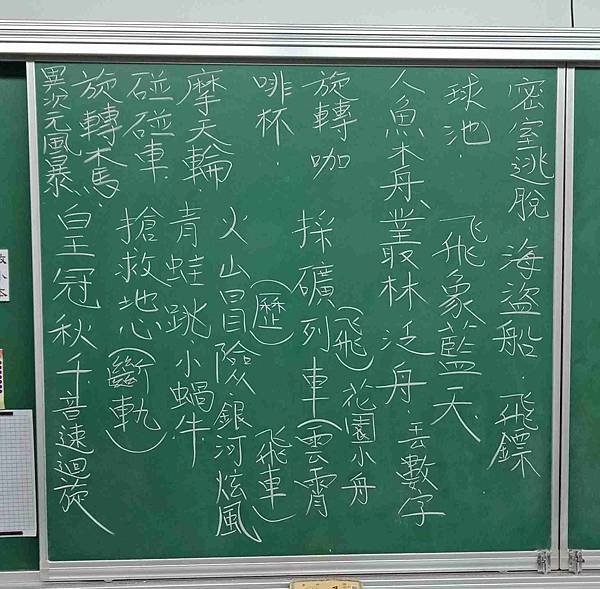 密室逃脫.海盜船.飛鏢
球池.飛象藍天.
人魚木舟、叢林泛舟.丟數字
(飛)花園小舟
旋轉咖 採礦列車(雲霄
啡杯.(歷)飛車)
摩天輪.火山冒險.銀河炫風
碰碰車.青蛙跳.小蝸牛
旋轉馬.搶救恐(斷軌)
異次元風暴.皇冠秋千音速迴旋